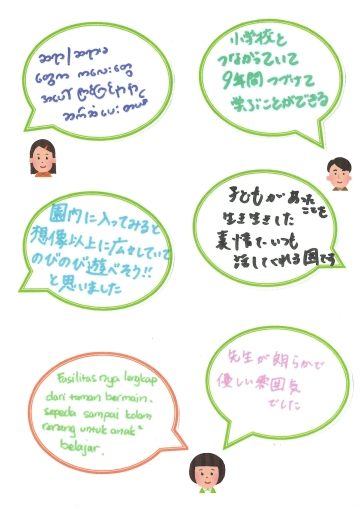 ဆရာ/ဆရာမ
တွေက ကလေးတွေ
အပေါ်
ဆက်ဆံပေးတယ်
小学校と
つながっていて
9年間つづけて
学ぶことができる
園内に入ってみると
想像以上に広々としていて
のびのび遊べそう!!
と思いました
子どもがあったことを
生き生きした
表情でいつも
話してくれる園です
Fasilitas nya lengkap
dari taman bermain,
sepeda sampai kolam
renang untuk anak²
belajar.
先生が朗らかで
優しい雰囲気
でした